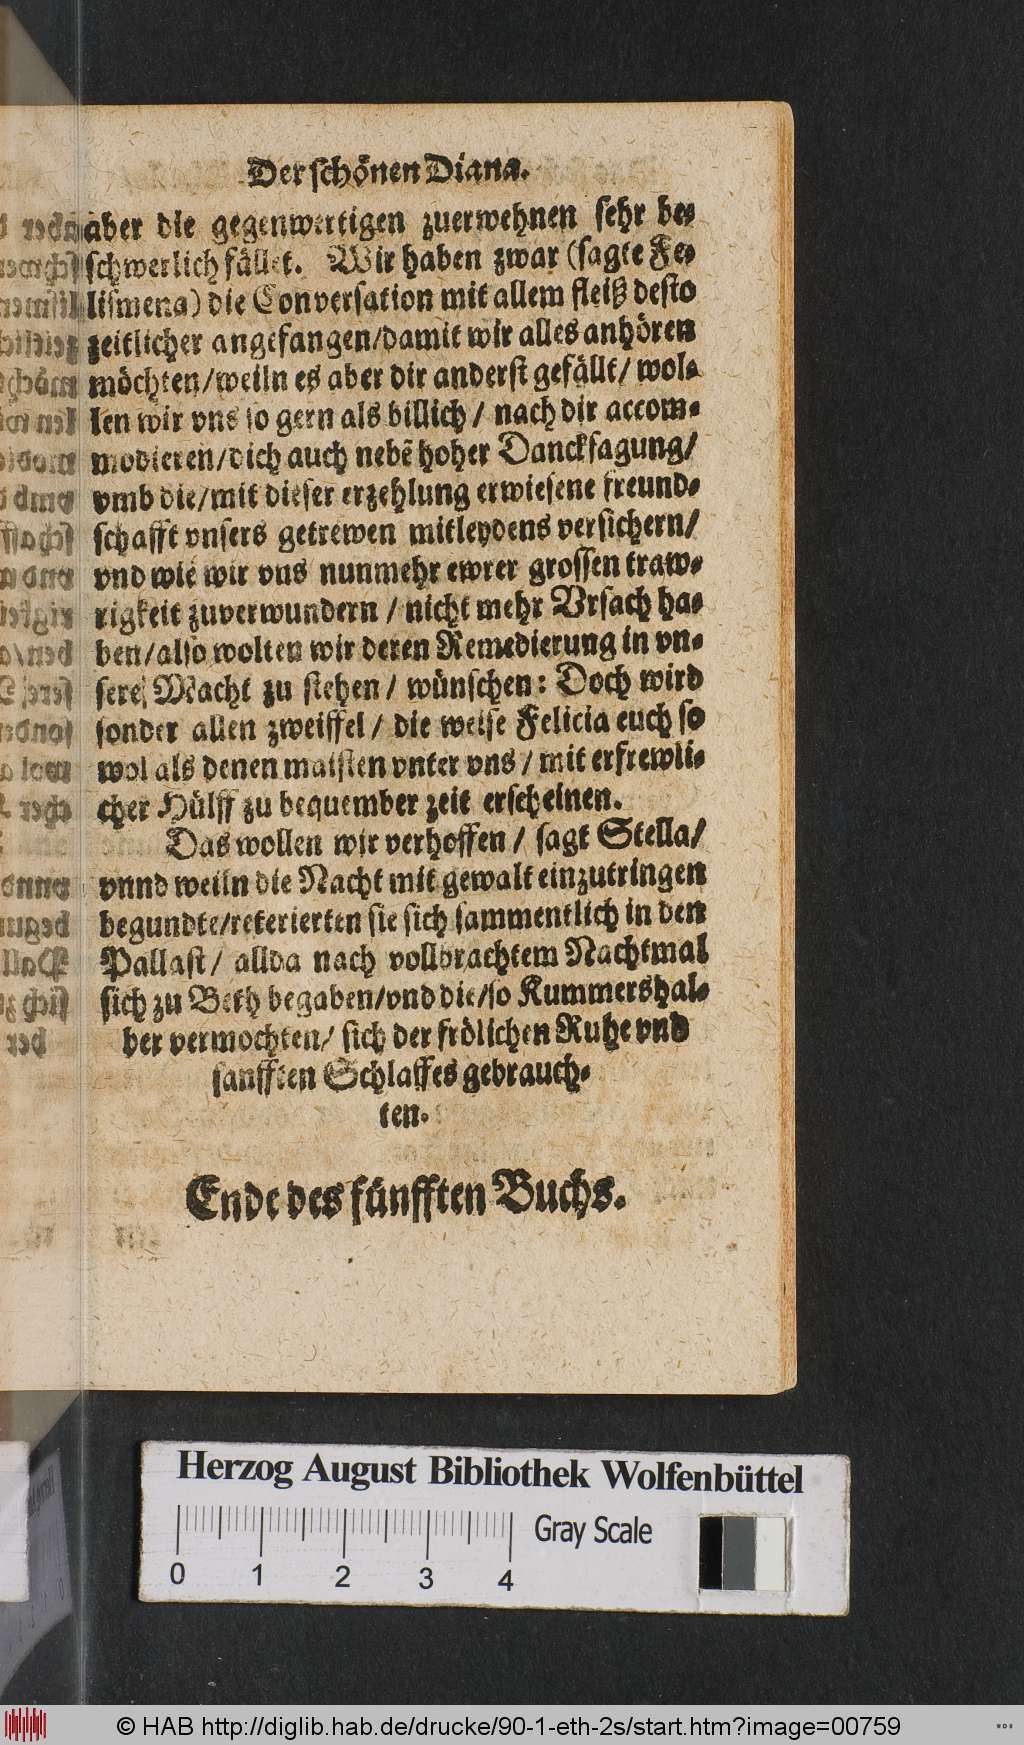 Der schönen Diana.
aber die gegenwertigen zuerwehnen sehr be-
schwerlich fället. Wir haben zwar (sagte Fe-
lismena) die Conversation mit allem fleiß desto
zeitlicher angefangen/damit wir alles anhören
möchten/weiln es aber dir anderst gefällt/ wol-
len wir vns so gern als billich / nach dir accom-
modieren/dich auch nebē hoher Dancksagung/
vmb die/mit dieser erzehlung erwiesene freund-
schafft vnsers getrewen mitleydens versichern/
vnd wie wir vns nunmehr ewrer grossen traw-
rigkeit zuverwundern / nicht mehr Vrsach ha-
ben/also wolten wir deren Remedierung in vn-
sere Macht zu stehen / wünschen: Doch wird
sonder allen zweiffel / die weise Felicia euch so
wol als denen maisten vnter vns / mit erfrewli-
cher Hülff zu bequember zeit erscheinen.
Das wollen wir verhoffen / sagt Stella/
vnnd weiln die Nacht mit gewalt einzutringen
begundte/reterierten sie sich sammentlich in den
Pallast / allda nach vollbrachtem Nachtmal
sich zu Beth begaben/vnd die/so Kummershal-
ber vermochten/ sich der frölichen Ruhe vnd
sanfften Schlaffes gebrauch-
ten.
Ende des fünfften Buchs.
Herzog August Bibliothek Wolfenbüttel
Gray Scale
0 1 2 3 4
© HAB http://diglib.hab.de/drucke/90-1-eth-2s/start.htm?image=00759